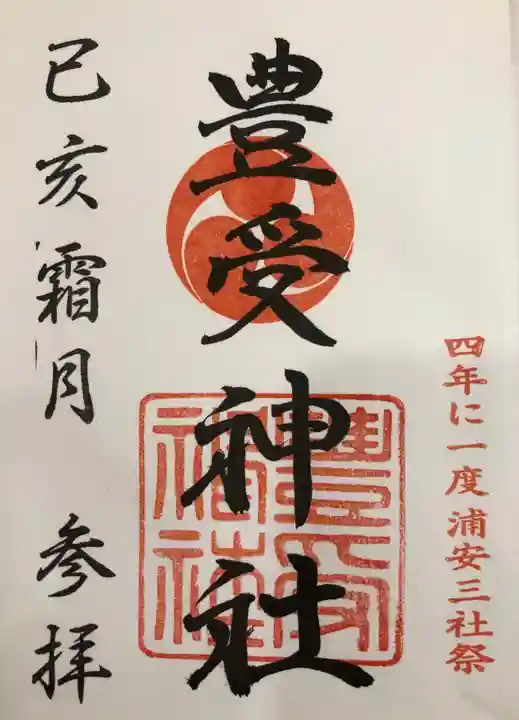 四年に一度浦安三社祭
豊受神社
豊受神社
己亥霜月 参拝